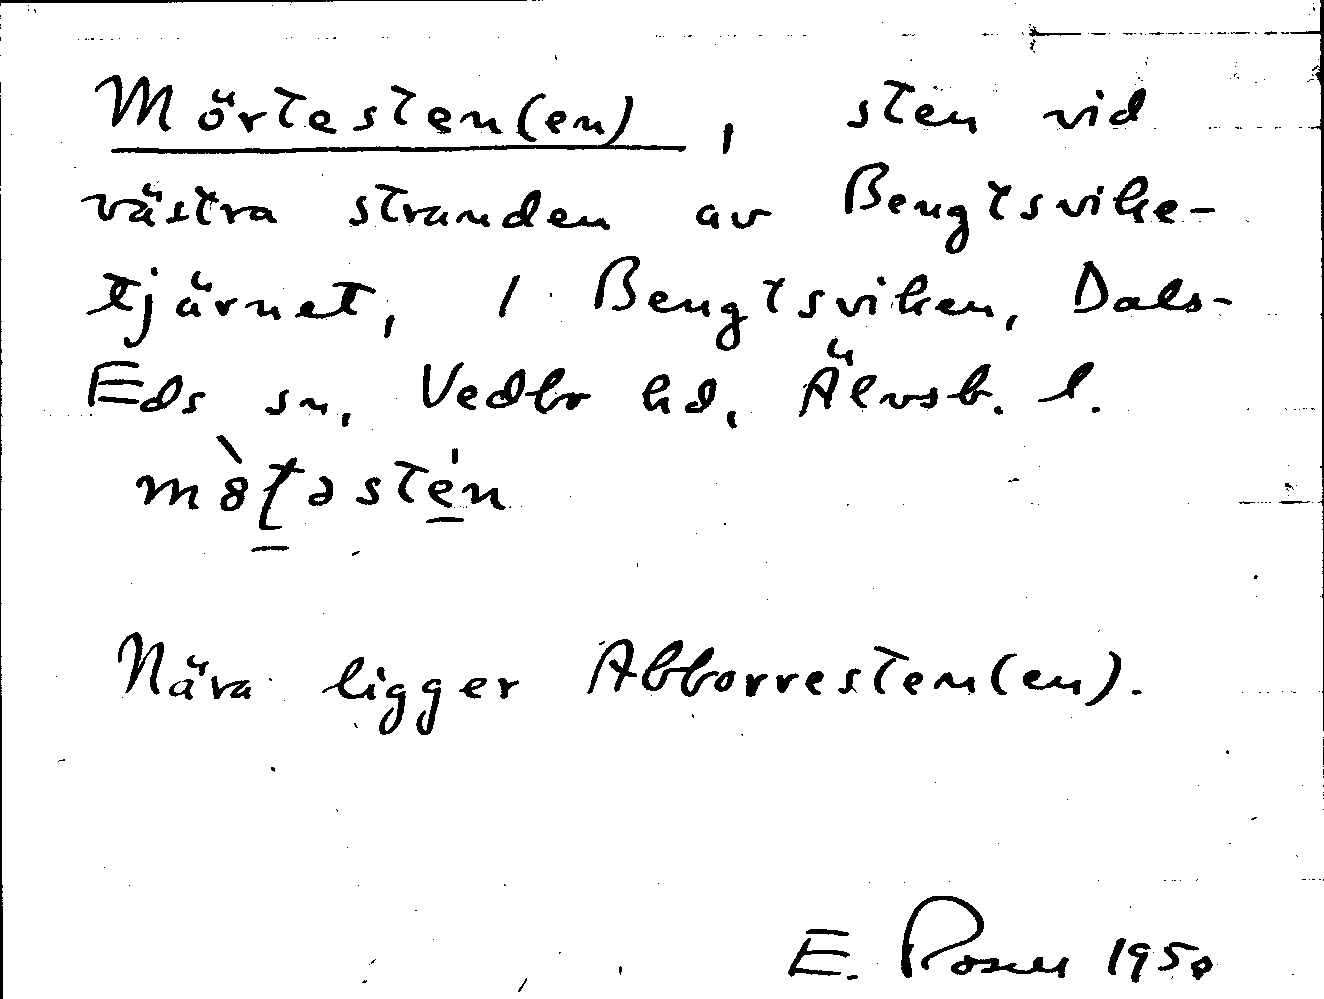 Mörtesten(en), sten vid
västra stranden av Bengtsvike-
tjärnet, 1 Bengtsviken, Dals-
Eds sn, Vedbo hd, Älvsb. l.
Nära ligger Abborresten(en).
E. 1950